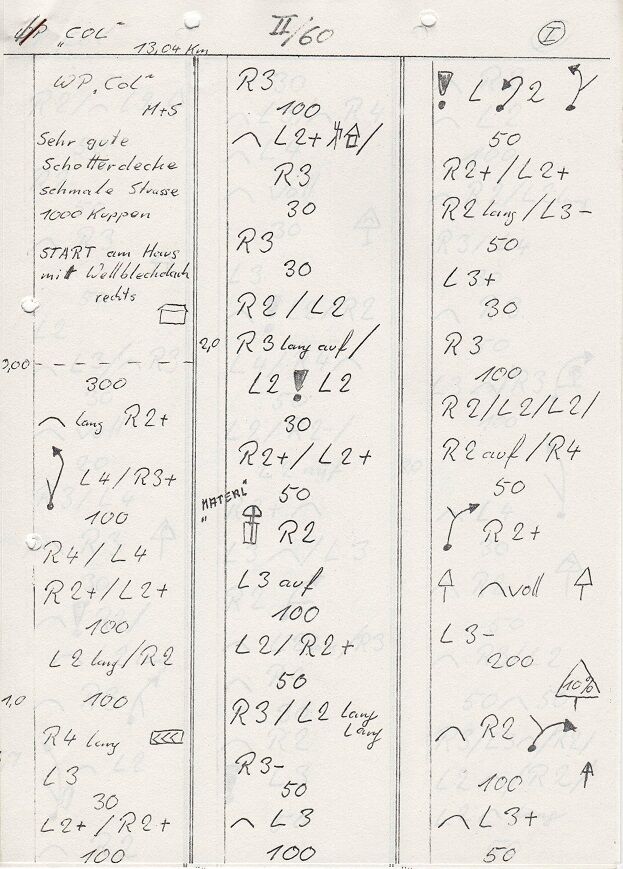 WP "COL" 13,04 Km
II/60
I
WP "Col"
M+S
Sehr gute
Schotterdecke
schmale Strasse
1000 Kuppen
START am Haus
mit Wellblechdach
rechts
3,00
300
lang R2+
L4/R3+
100
R4/L4
R2+/L2+
100
L2 lang/R2
1,0
100
R4 lang
L3
30
L2+/R2+
100
R3
100
L2+ /
R3
30
R3
30
R2/L2
2,0 R3 lang auf/
L2 ! L2
30
R2+/L2+
50
"MATERL"
R2
L3 auf
100
L2/R2+
50
R3/L2 lang
lang
R3-
50
L3
100
! L 2
50
R2+/L2+
R2 lang/L3-
50
L3+
30
R3
100
R2/L2/L2/
R2 auf/R4
50
R2+
voll
L3-
200
10%
R2
100
L3+
50